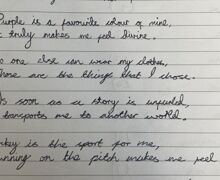 Purple is a favourite colour of mine,
truly makes me feel divine.
o one else can wear my clothes,
hose are the things that I chose.
s soon as a story is unfurled,
transports me to another world.
key is the sport for me,
unning on the pitch makes me feel